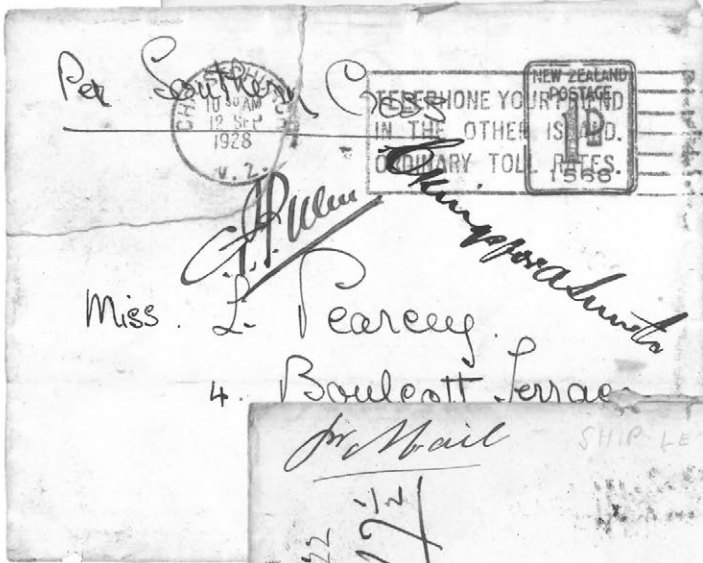 Per Southern Cross
CHRISTCHURCH
10 30 AM
12 SEP
1928
N.Z.
TELEPHONE YOUR FRIEND
IN THE OTHER ISLAND.
ORDINARY TOLL RATES.
NEW ZEALAND
POSTAGE
1D
1568
C Kingsford Smith
Miss. L. Pearcey.
4. Boulcott Terrace
pr Mail
SHIP LE
22
7½